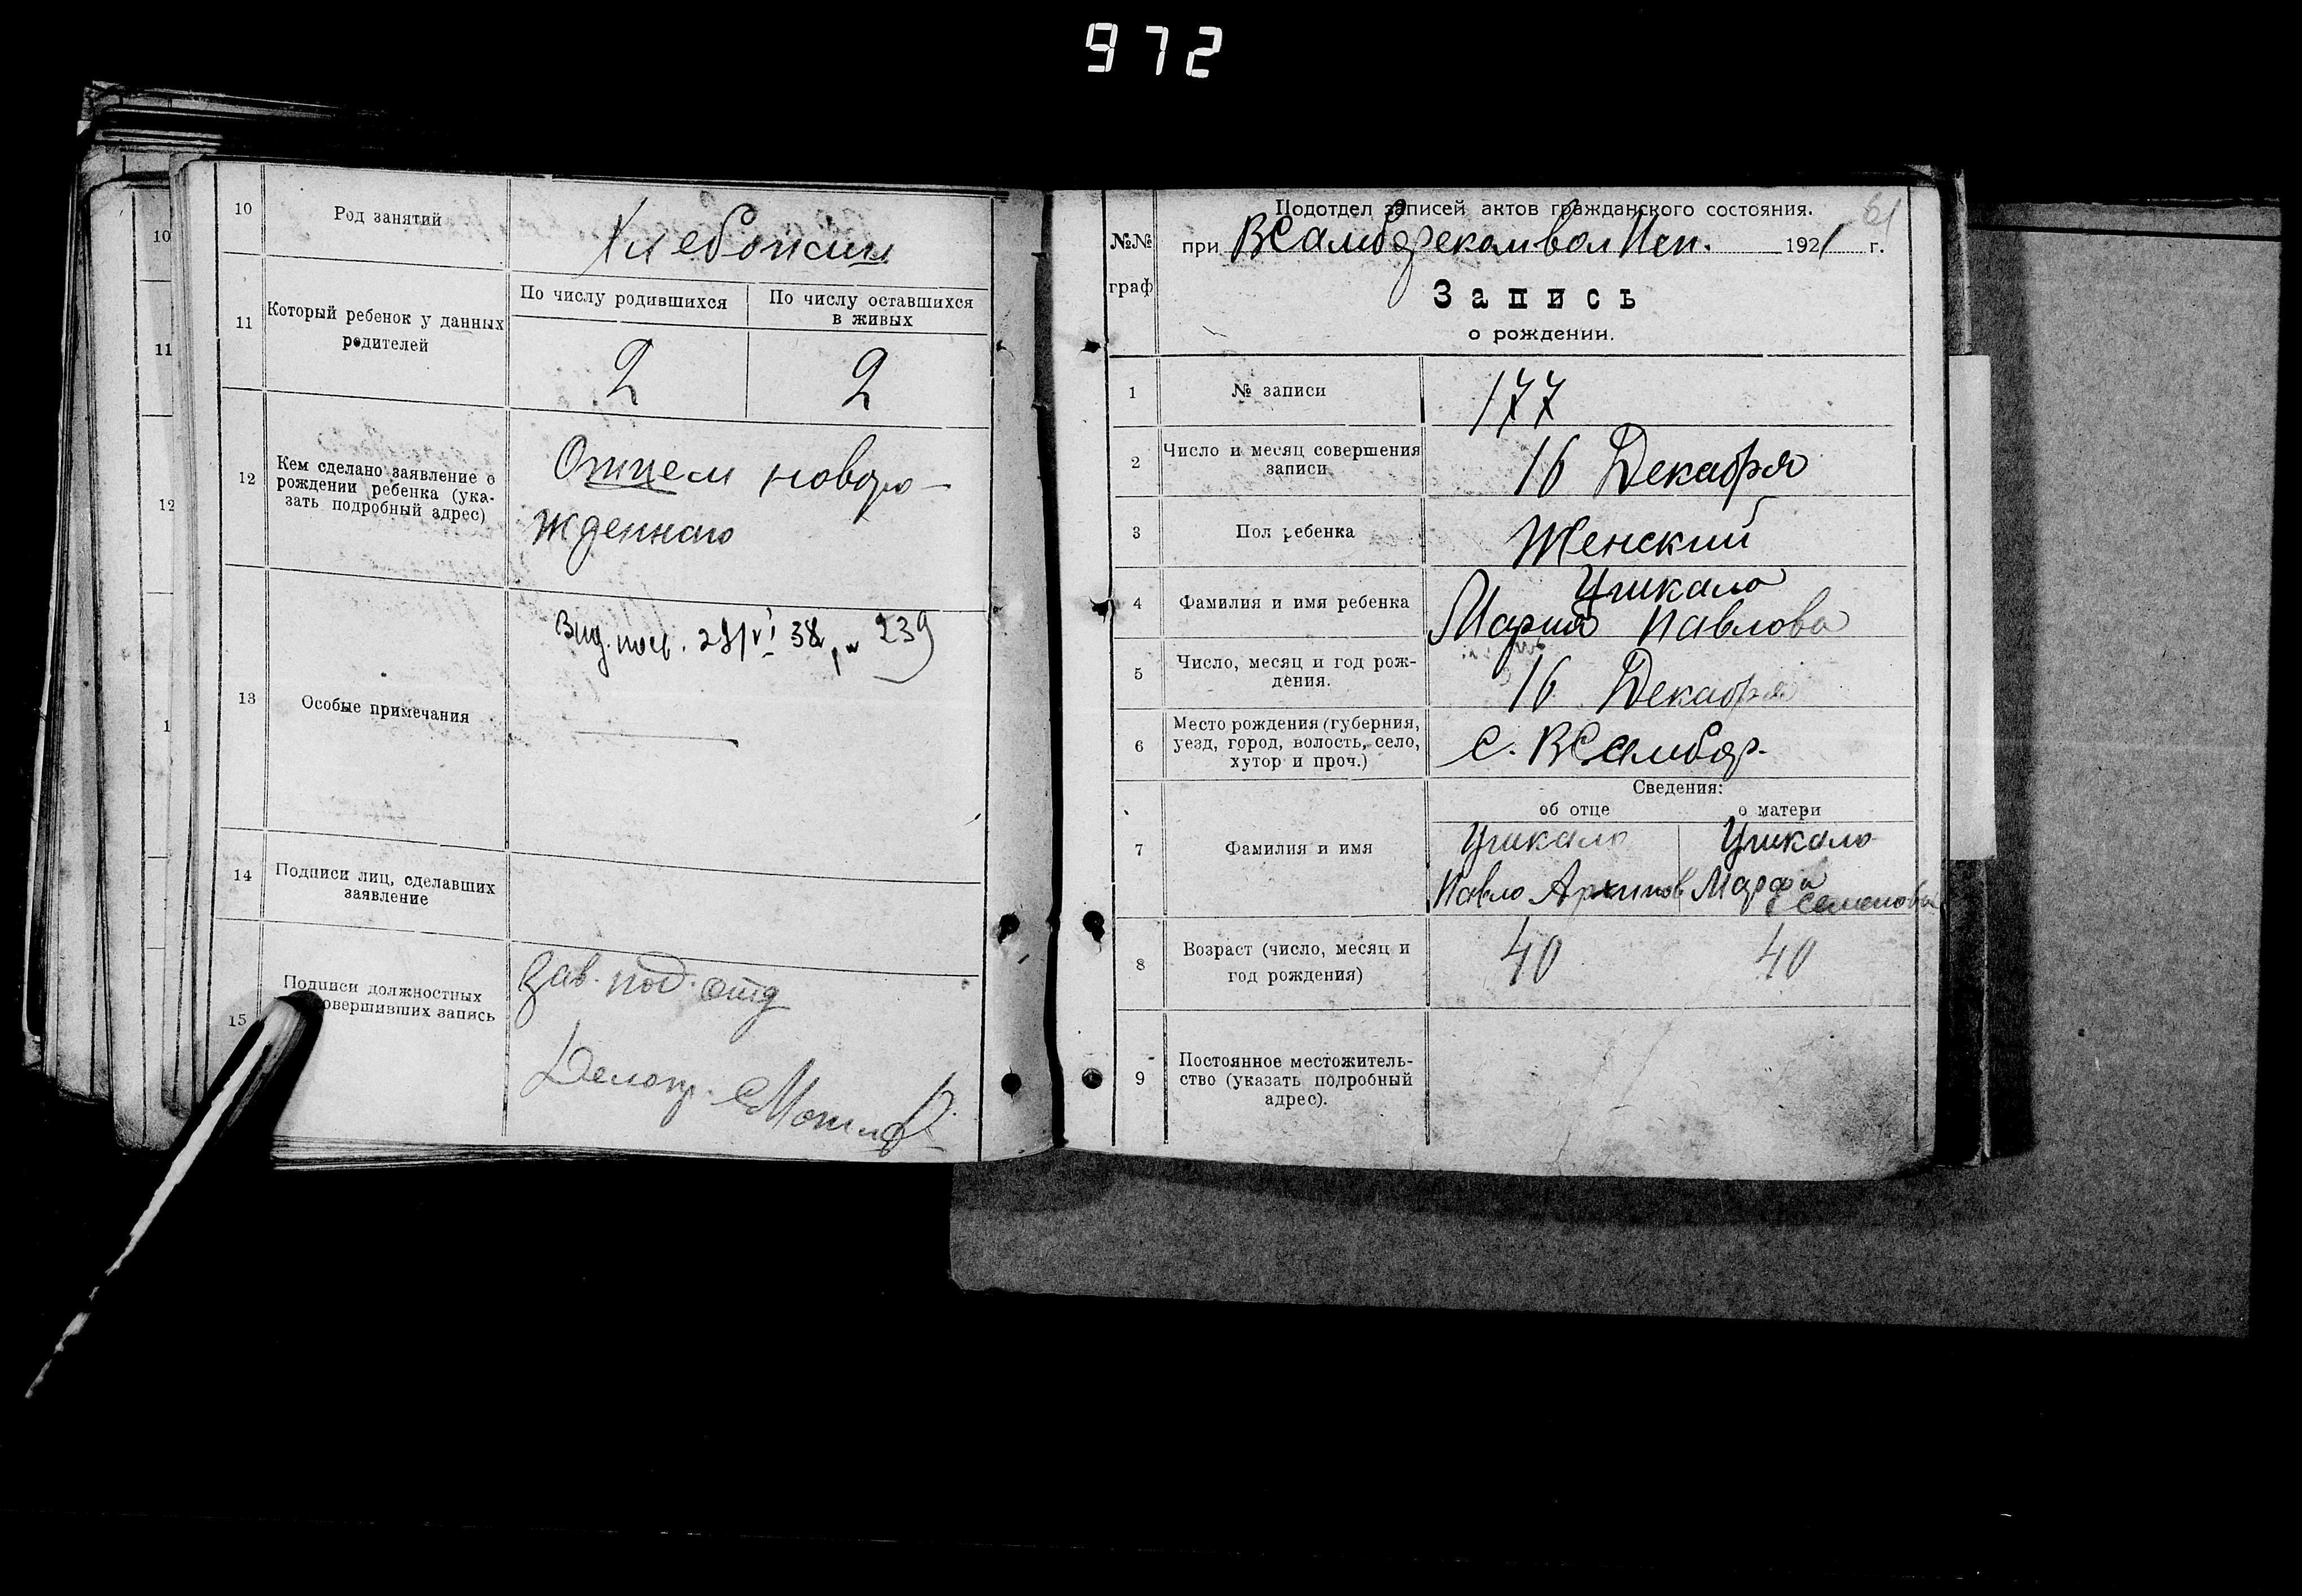 972
10
Род занятий
Хлебопаш
11
Который ребенок у данных
родителей
По числу родившихся
По числу оставшихся
в живых
2
2
12
Кем сделано заявление о
рождении ребенка (ука-
зать подробный адрес)
Отцем новоро-
жденнаго
13
Особые примечания
38 239
14
Подписи лиц, сделавших
заявление
15
Подписи должностных
овершивших запись
Зав. под. отд
Делопр.
10
11
12
1
61
Подотдел записей актов гражданского состояния.
№№
граф
при ВСамбор 1921 г.
Запись
о рождении.
1
№ записи
177
2
Число и месяц совершения
записи
16 Декабря
3
Пол ребенка
Женский
4
Фамилия и имя ребенка
Цикало
Мария Павлова
5
Число, месяц и год рож-
дения.
16 Декабря
6
Место рождения (губерния,
уезд, город, волость, село,
хутор и проч.)
с. ВСамбор.
Сведения:
об отце
о матери
7
Фамилия и имя
Цикало
Павло Архипов
Цикало
Марфа
Семенова
8
Возраст (число, месяц и
год рождения)
40
40
9
Постоянное местожитель-
ство (указать подробный
адрес).